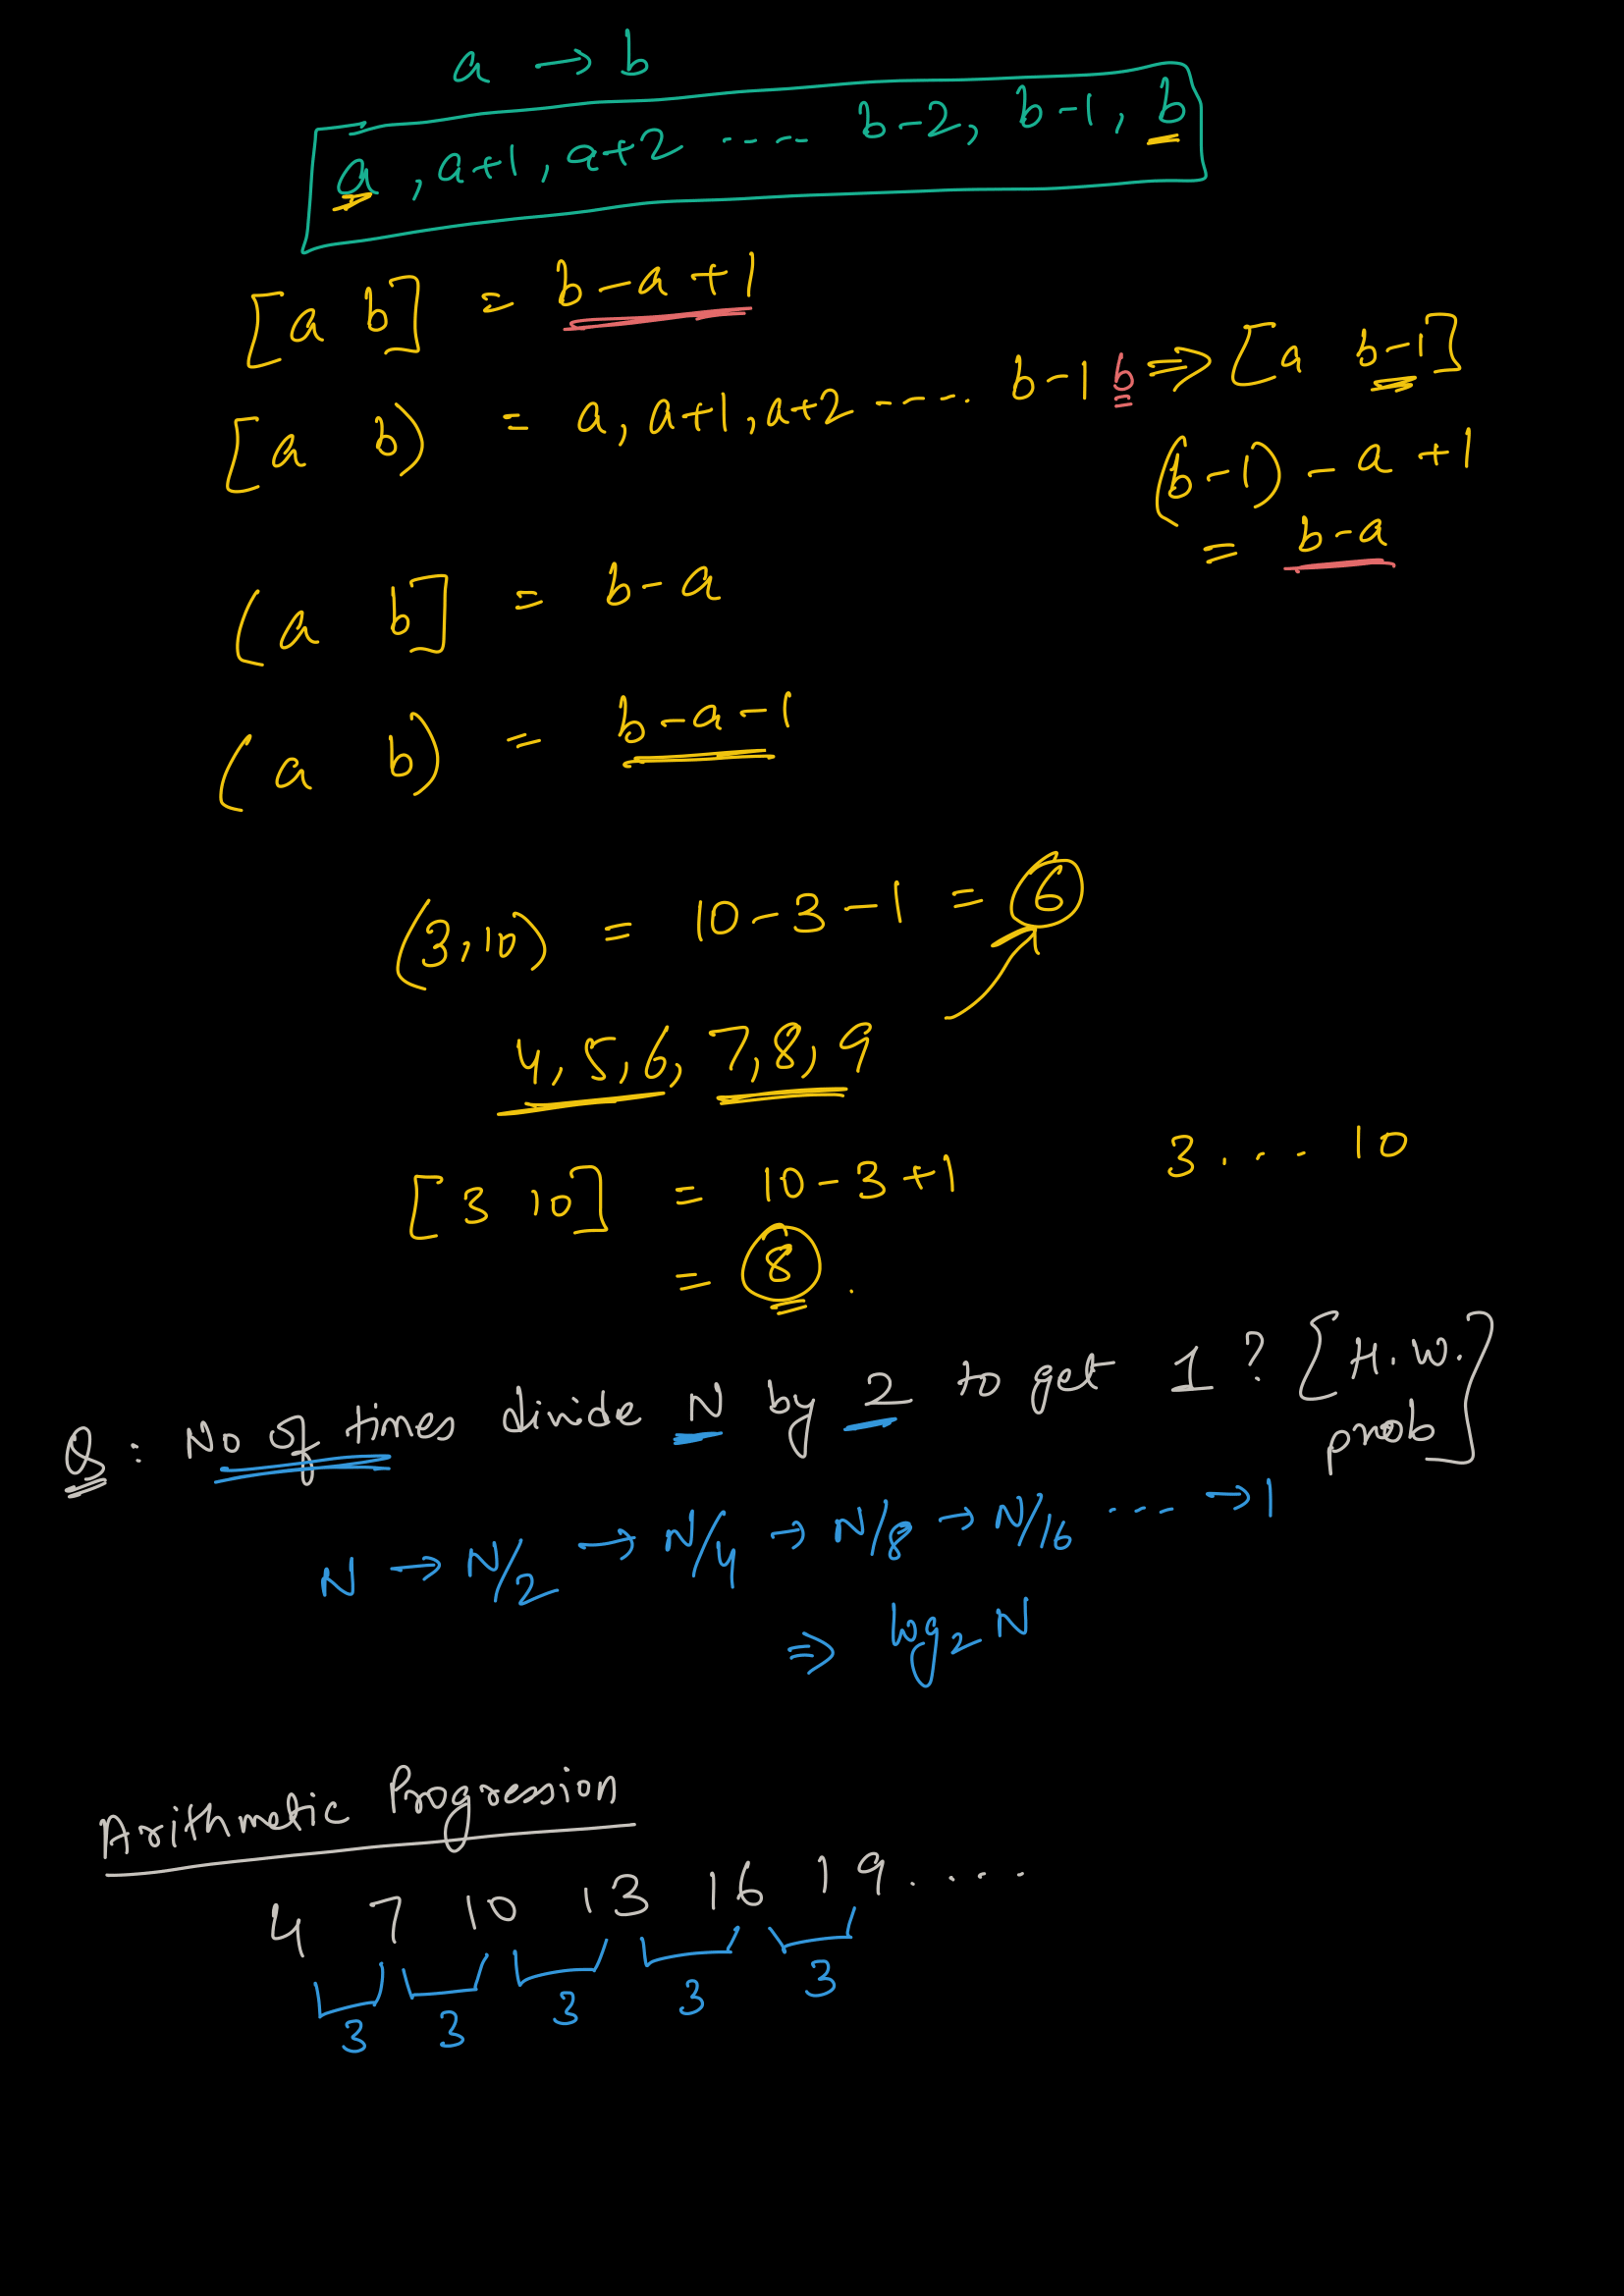 a → b
a, a+1, a+2 ---- b-2, b-1, b
[a b] = b-a+1
[a b) = a, a+1, a+2 ----. b-1 b ⇒ [a b-1]
(b-1) - a +1
= b-a
(a b] = b-a
(a b) = b-a-1
(3,10) = 10-3-1 = 6
4, 5, 6, 7, 8, 9
[3 10] = 10-3+1
3 . . . . 10
= 8 .
Q : No of times divide N by 2 to get 1 ? [H.W. prob]
N → N/2 → N/4 → N/8 → N/16 ---- → 1
⇒ log₂ N
Arithmetic Progression
4 7 10 13 16 19 . . . .
3 3 3 3 3